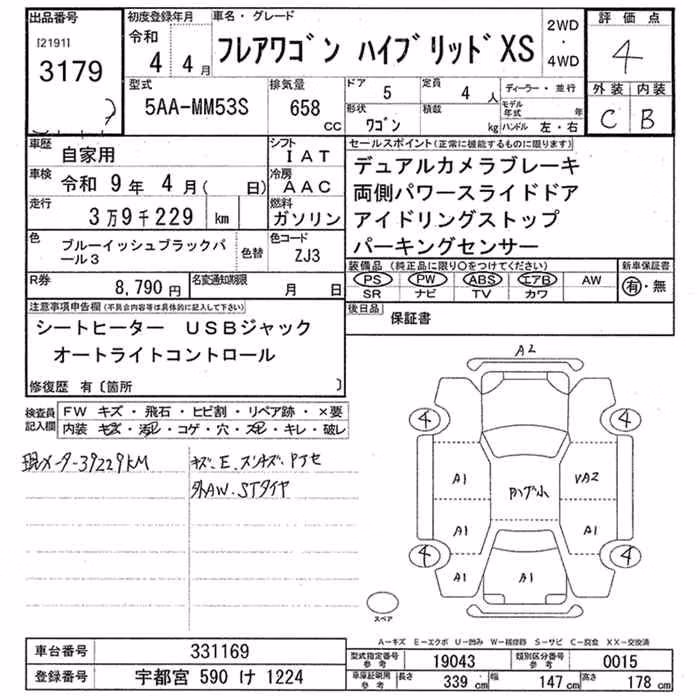 出品番号
[2191]
3179
初度登録年月
令和
4 4月
車名・グレード
フレアワゴン ハイブリッド XS
2WD
・
4WD
評価点
4
外装 内装
C B
型式
5AA-MM53S
排気量
658
CC
ドア
5
定員
4人
形状
ワゴン
積載
kg
ディーラー・並行
モデル年式
年
ハンドル 左・右
車歴
自家用
シフト
IAT
車検
令和 9年 4月( 日)
冷房
AAC
走行
3万9千229 km
燃料
ガソリン
色
ブルーイッシュブラックパール3
色替
色コード
ZJ3
R券
8,790円
名変通知期限
月 日
セールスポイント(正常に機能するものに限ります)
デュアルカメラブレーキ
両側パワースライドドア
アイドリングストップ
パーキングセンサー
装備品(純正品に限り○をつけてください)
PS PW ABS エアB AW
SR ナビ TV カワ
新車保証書
有・無
後日品
保証書
注意事項申告欄(不具合内容等は具体的に記入して下さい)
シートヒーター USBジャック
オートライトコントロール
修復歴 有〔箇所 〕
検査員
記入欄
FW キズ・飛石・ヒビ割・リペア跡・×要
内装 キズ・汚レ・コゲ・穴・スレ・キレ・破レ
現メーター39229KM
キズ、E、
外AW、STタイヤ
A2
4 4
A1 A1 VA2
A1 A1
4 4
A1 A1 A1
スペア
A-キズ E-エクボ U-凹み W-補修跡 S-サビ C-腐食 XX-交換済
車台番号
331169
登録番号
宇都宮 590 け 1224
型式指定番号
参考
19043
類別区分番号
参考
0015
車庫証明用
参考
長さ
339 cm
幅
147 cm
高さ
178 cm